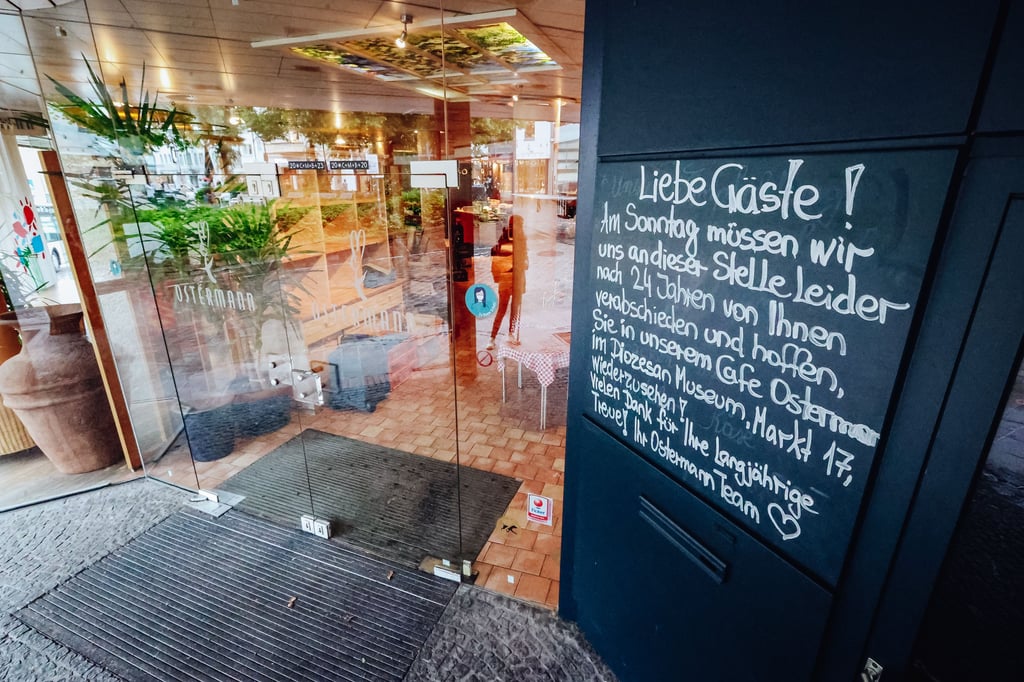 20*C+M+B+23
20*C+M+B+20
OSTERMANN
OSTERMANN
Liebe Gäste!
Am Sonntag müssen wir
uns an dieser Stelle Leider
nach 24 Jahren von Ihnen
verabschieden und hoffen,
Sie in unserem Cafe Osterman
im Diözesan Museum, Markt 17,
wiederzusehen!
Vielen Dank für Ihre Langjährige
Treue! Ihr Ostermann Team